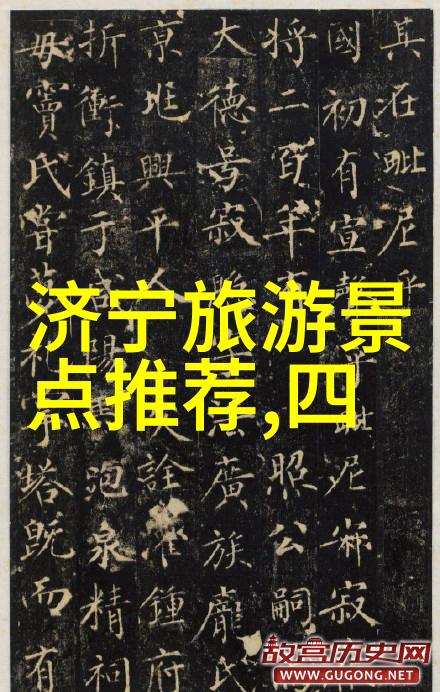 其在毗尼乎
國初有宣毗尼寂
将二百年照公嗣
大德号寂廣族龐氏
京兆興平人詮灌鍾府
折衝鎮于咸陽泡泉精祠
毋竇氏嘗塔既而有
济宁旅游景
点推荐,四
故宫历史网
WWW.GUGONG.NET